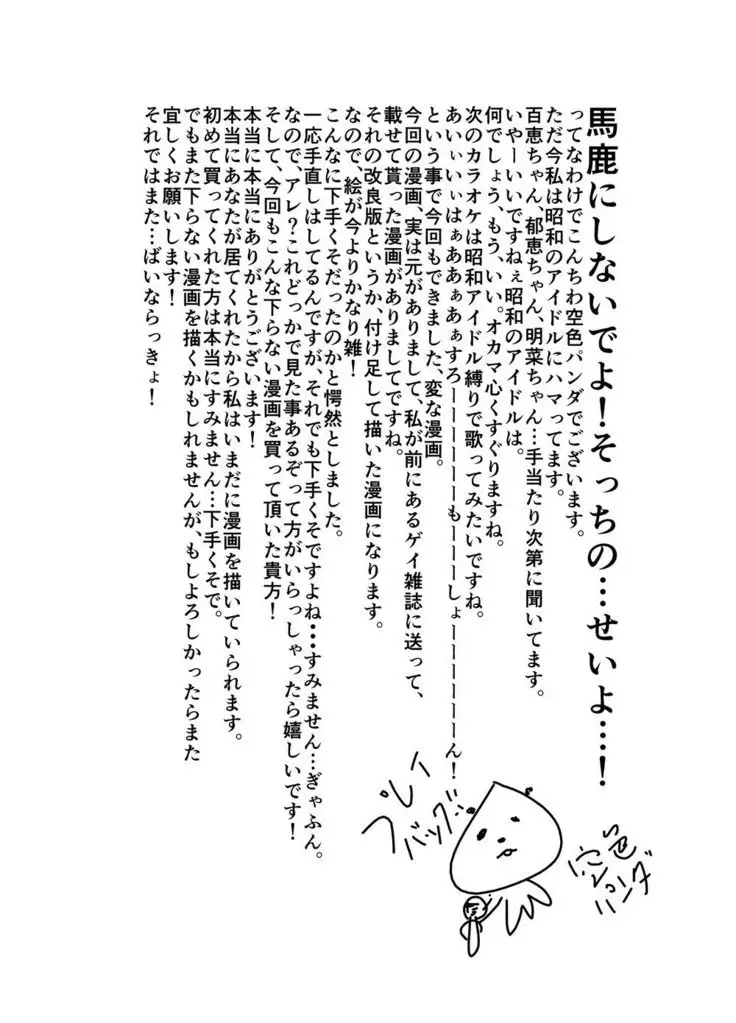 馬鹿にしないでよ！そっちの…せいよ…！
ってなわけでこんちわ空色パンダでございます。
ただ今私は昭和のアイドルにハマってます。
百恵ちゃん、郁恵ちゃん、明菜ちゃん…手当たり次第に聞いてます。
いやーいいですねぇ昭和のアイドルは。
何でしょう、もう、いい。オカマ心くすぐりますね。
次のカラオケは昭和アイドル縛りで歌ってみたいですね。
あいぃいぃはぁああぁあぁすろーーーーーーもーーーしょーーーーーーん！
という事で今回もできました、変な漫画。
今回の漫画、実は元がありまして、私が前にあるゲイ雑誌に送って、
載せて貰った漫画がありましてですね。
それの改良版というか、付け足して描いた漫画になります。
なので、絵が今よりかなり雑！
こんなに下手くそだったのかと愕然としました。
一応手直しはしてるんですが、それでも下手くそですよね・・・すみません…ぎゃふん。
なので、アレ？これどっかで見た事あるぞって方がいらっしゃったら嬉しいです！
そして、今回もこんな下らない漫画を買って頂いた貴方！
本当に本当にありがとうございます！
本当にあなたが居てくれたから私はいまだに漫画を描いていられます。
初めて買ってくれた方は本当にすみません…下手くそで。
でもまた下らない漫画を描くかもしれませんが、もしよろしかったらまた
宜しくお願いします！
それではまた…ばいならっきょ！
プレイ
バック!!
空色
パンダ